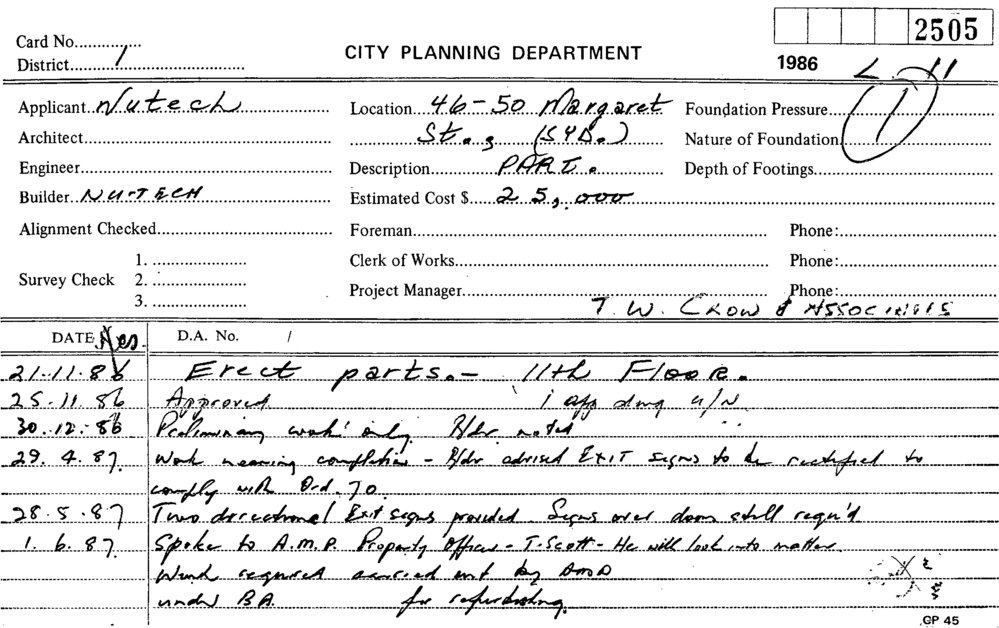 2505
Card No...............
District........../..............................
CITY PLANNING DEPARTMENT
1986
L. 11
1
Applicant Nutech
Location 46-50 Margaret
Foundation Pressure
Architect
St., (SYD.)
Nature of Foundation
Engineer
Description PART.
Depth of Footings
Builder NU-TECH
Estimated Cost $ 25,000
Alignment Checked
Foreman
Phone:
Survey Check
1.
2.
3.
Clerk of Works
Phone:
Project Manager
Phone:
T. W. CROW & ASSOCIATES
DATE
D.A. No. /
21.11.86 Erect parts.- 11th Floor.
25.11.86 Approved 1 app dwg a/N
30.12.86 Preliminary work only. B/dr noted
29.4.87. Work nearing completion - B/dr advised EXIT signs to be rectified to
comply with Ord. 70.
28.5.87 Two directional Exit signs provided. Signs over doors still requ'd
1.6.87. Spoke to A.M.P. Property Officer - T. Scott - He will look into matter.
Work required carried out by
under BA. for refurbishing.
GP 45